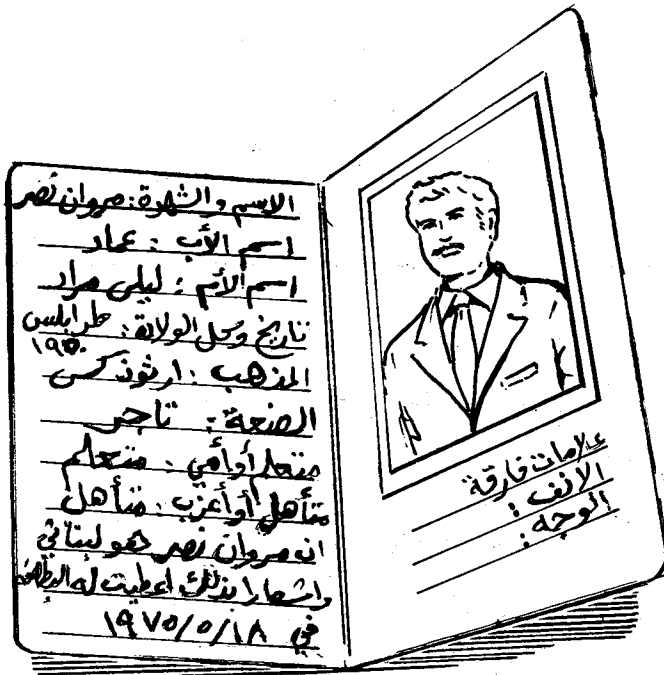 الاسم والشهرة: مروان نصر
اسم الأب: عماد
اسم الأم: ليلى مراد
تاريخ ومحل الولادة: طرابلس
المذهب: ارثوذكس
الصنعة: تاجر
متعلم أو أمي: متعلم
متأهل أو أعزب: متأهل
ان مروان نصر هو لبناني
واشعارا بذلك اعطيت له البطاقة
في ١٨/٥/١٩٧٥
علامات فارقة
الانف:
الوجه: